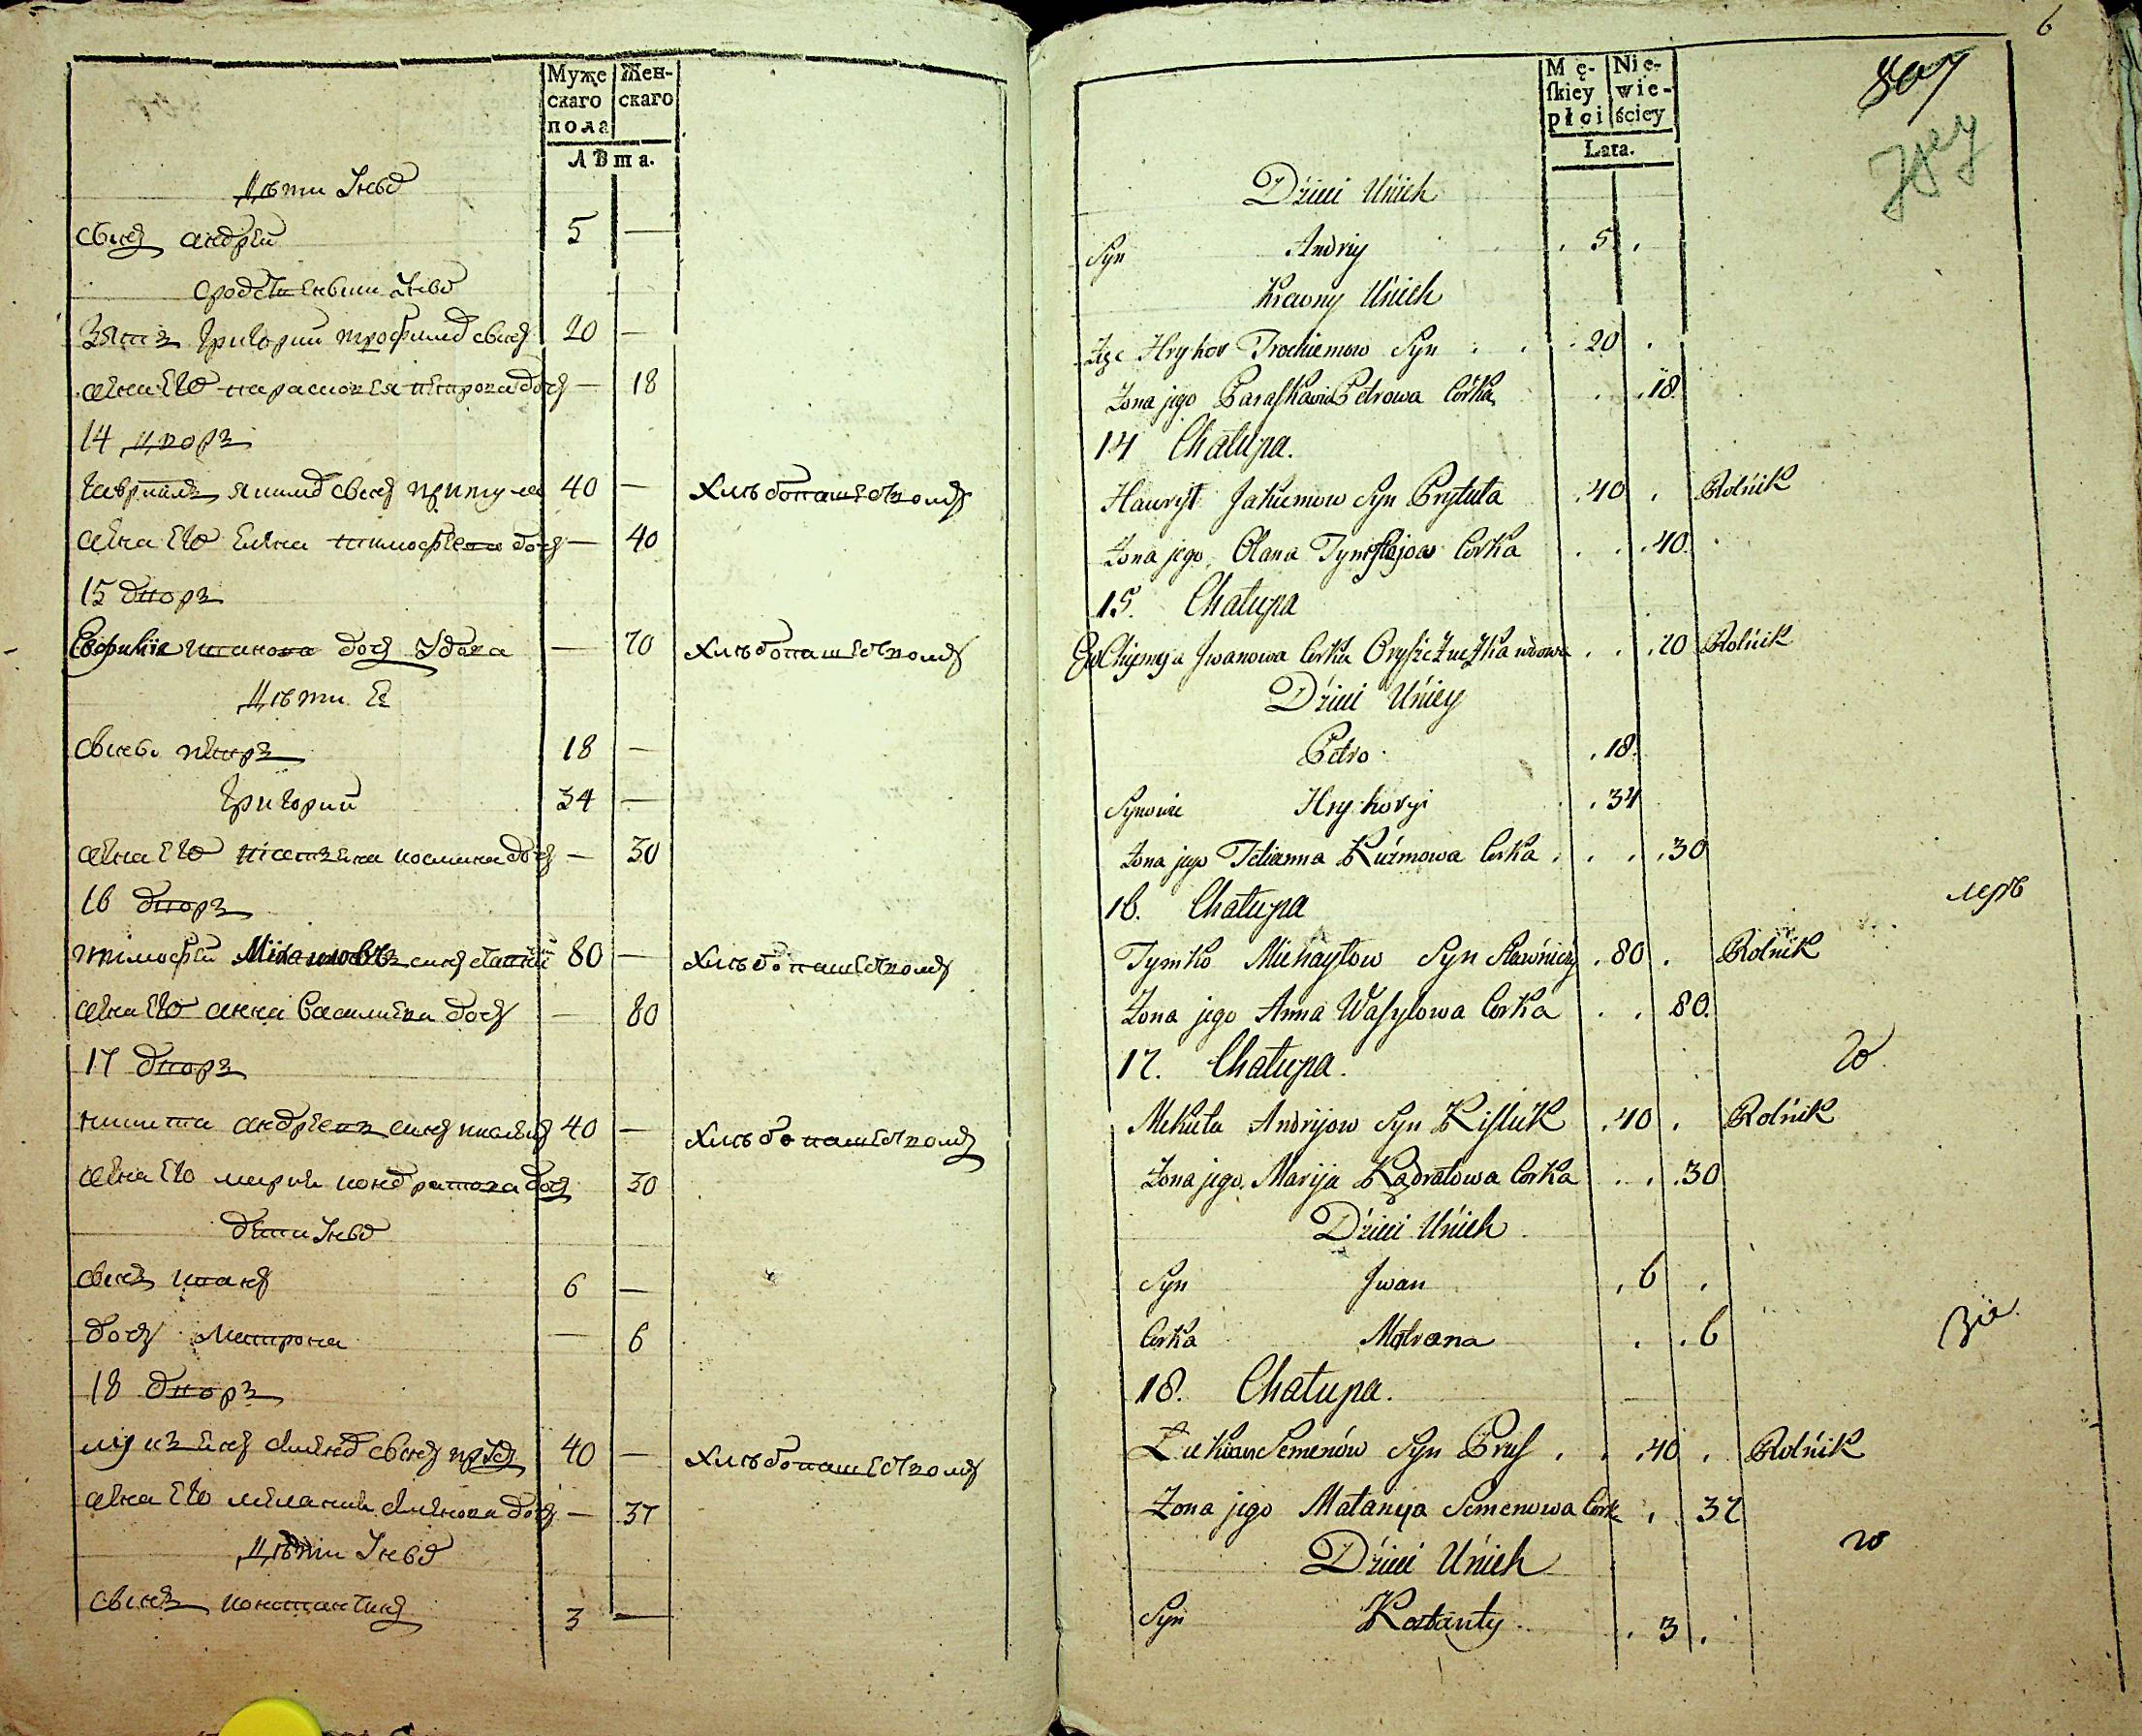 Муже
скаго
пола
Жен-
скаго
Лѣта.
Дѣти Ихъ
сынъ андрей 5 —
сродственныи Ихъ
зять григорий трофимов сынъ 20 —
жена Его парасковея петрова дочь — 18
14 дворъ
гаврила якимов сынъ притула 40 — хлебопашествомъ
жена Его елена тимофеева дочь — 40
15 дворъ
Евфимия иванова дочь Удова — 70 хлебопашествомъ
Дѣти Ее
сыны петръ 18 —
григорий 34 —
жена Его татьяна космина дочь — 30
16 дворъ
тимофей Михайловъ сынъ 80 — хлебопашествомъ
жена Его анна Васильева дочь — 80
17 дворъ
никита андреевъ сынъ 40 — хлебопашествомъ
жена Его мария кондратова дочь 30
дети Ихъ
сынъ иванъ 6 —
дочь Матрона — 6
18 дворъ
лукьянъ семенов сынъ прусъ 40 — хлебопашествомъ
жена Его мелания семенова дочь — 37
Дѣти Ихъ
сынъ константинъ 3 —
6
Mę-
ſkiey
płci
Nie-
wie-
ściey
Lata.
Dzieci Unich
Syn Andriy . 5 .
Krewny Unich
Hrykor Trochiemow Syn . 20 .
Żona jego Paraſkawia Petrowa Córka . . 18
14 Chałupa.
Hawrył Jakiemow Syn Prytuła . 40 . Rolnik
Żona jego Olana Tymoſiejow Corka . . 40.
15. Chałupa
Iwanowa Corka wdowa . . 70 Rolnik
Dzieci Uniey
Petro . 18.
Synowie Hryhoryi . 34
Żona jego Tetianna Kuzmowa Corka . . . 30
16. Chałupa
Tymko Michayłow Syn 80 . Rolnik
Żona jego Anna Waſylowa Corka . . 80.
17. Chałupa.
Mekuta Andrijow Syn Kiſluk . 40 . Rolnik
Żona jego Marija Kądratowa Corka . . 30
Dzieci Unich
Syn Jwan . 6 .
Corka Motrona . . 6
18. Chałupa.
Łukian Semenów Syn Pruſ . . 40 . Rolnik
Żona jego Małanija Semenowa Cork . 37
Dzieci Unich
Syn Kostanty . 3 .